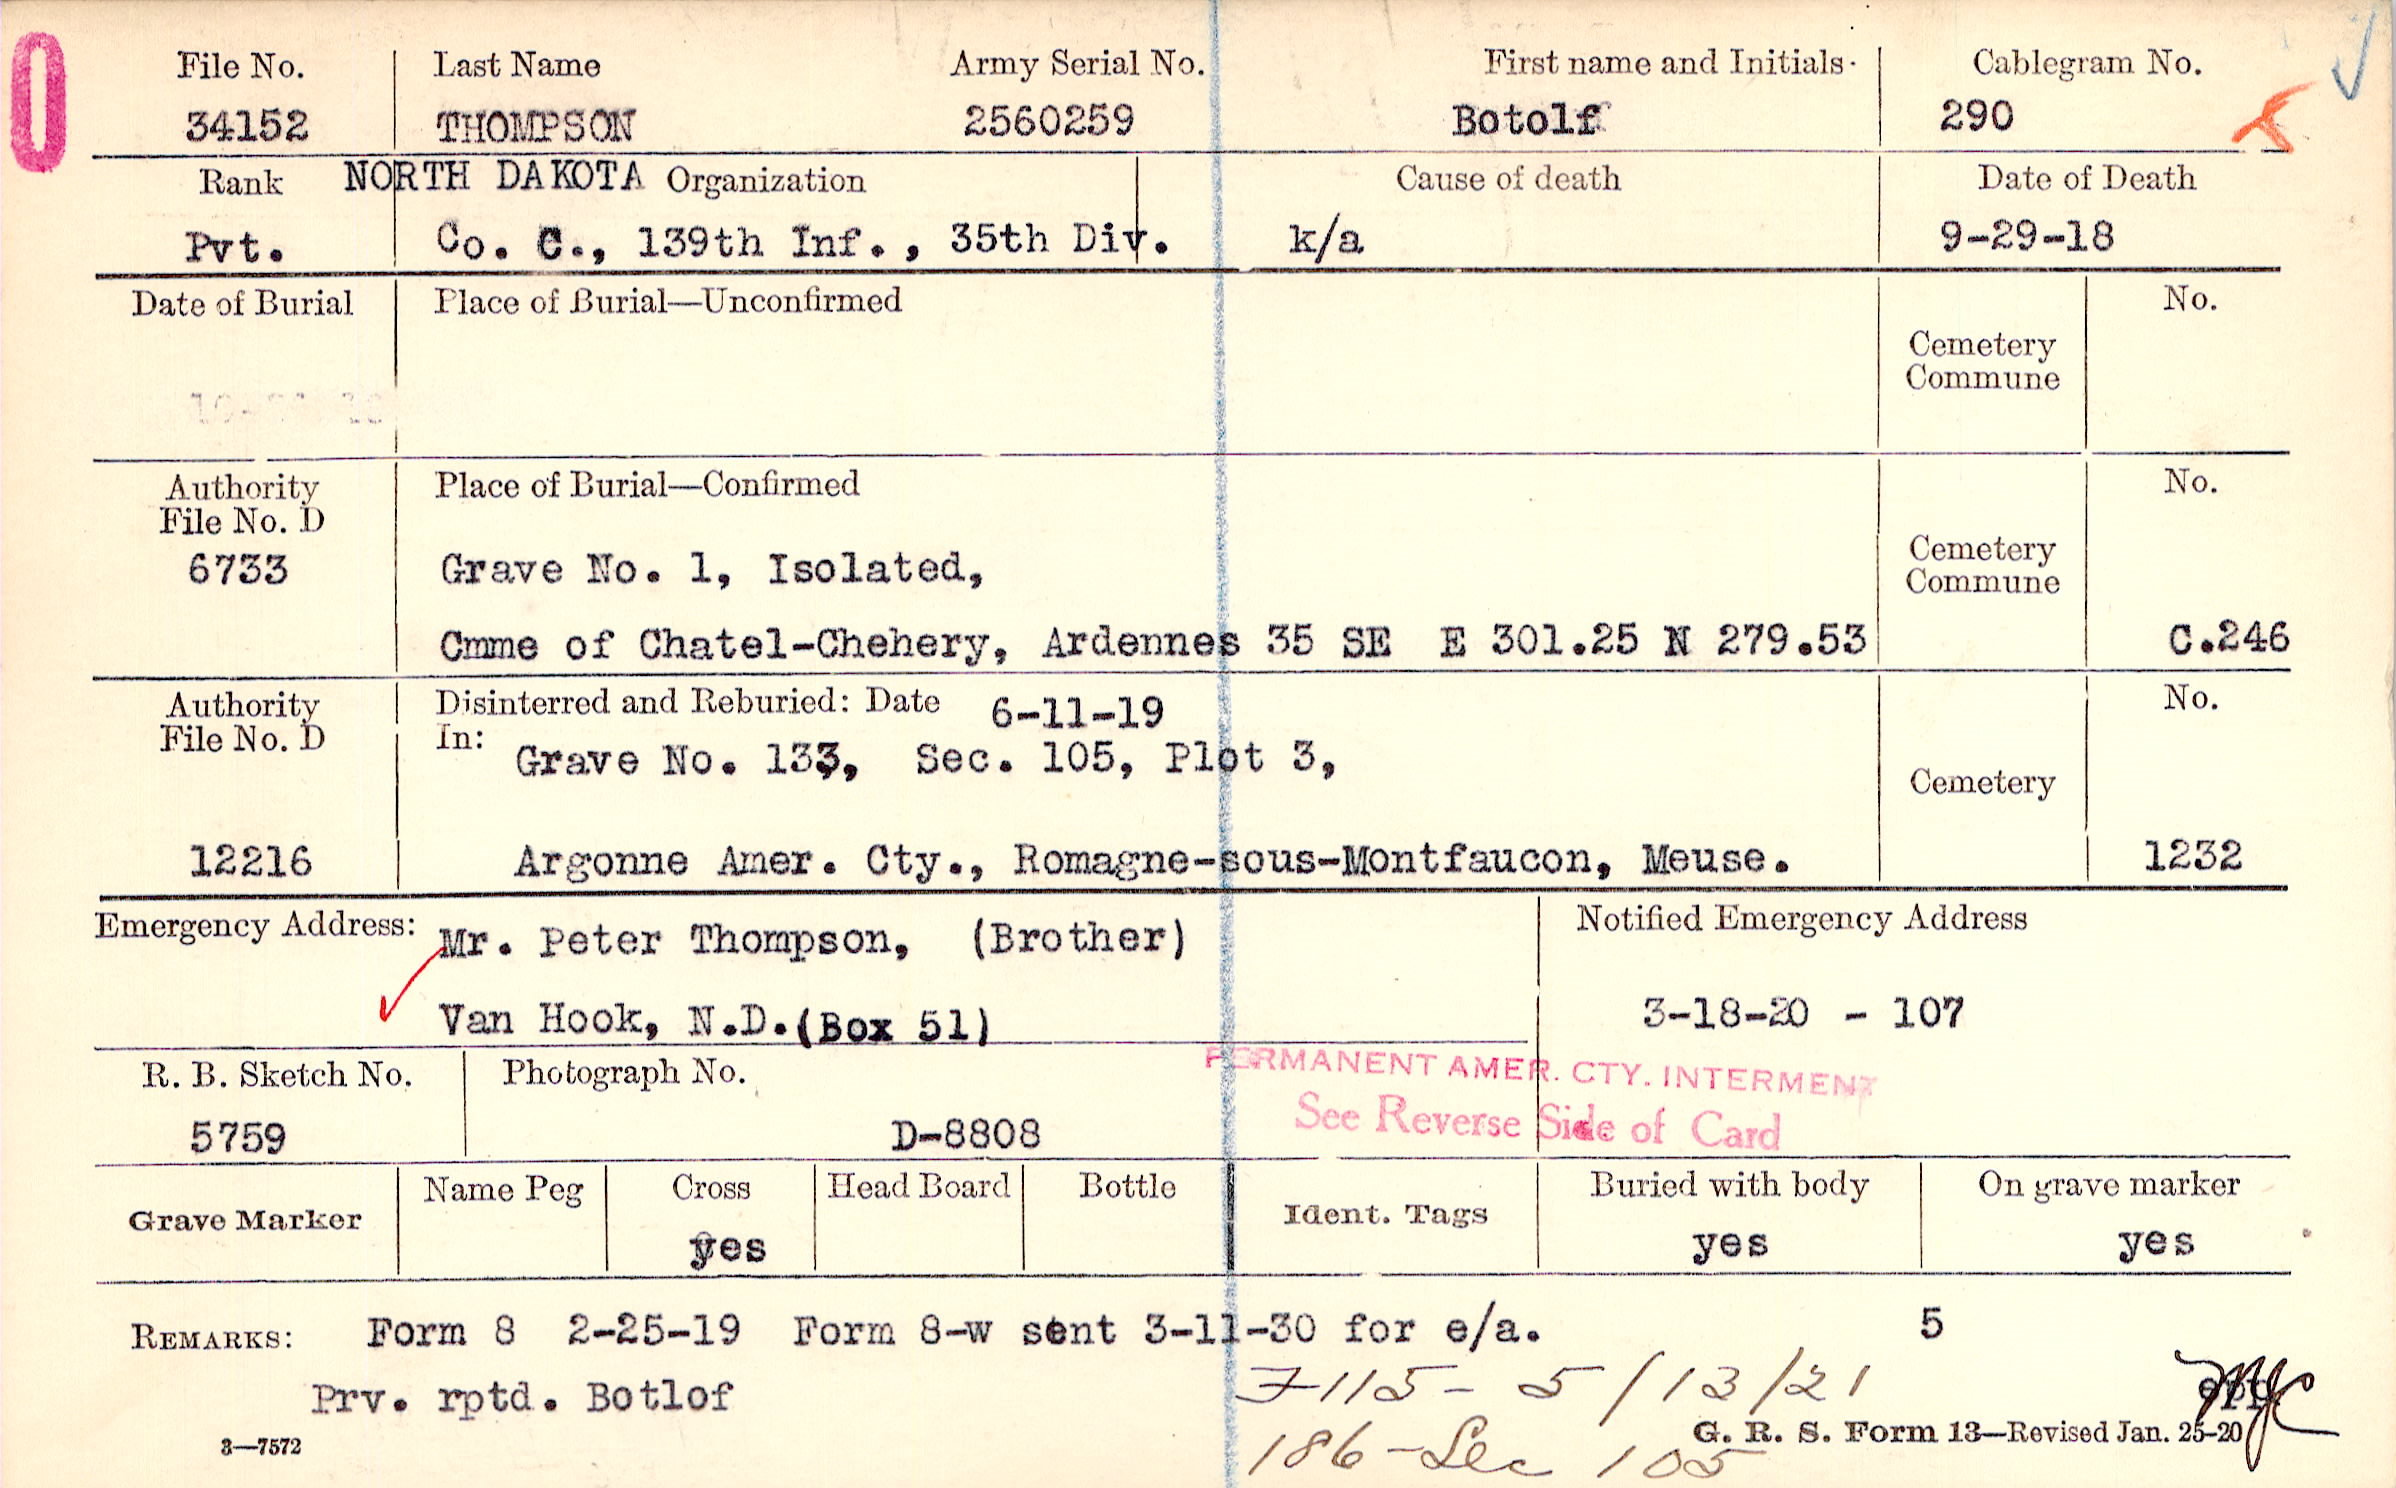 0
File No. Last Name Army Serial No. First name and Initials Cablegram No.
34152 THOMPSON 2560259 Botolf 290
Rank NORTH DAKOTA Organization Cause of death Date of Death
Pvt. Co. C., 139th Inf., 35th Div. k/a 9-29-18
Date of Burial Place of Burial—Unconfirmed No.
Cemetery
Commune
Authority Place of Burial—Confirmed No.
File No. D
6733 Grave No. 1, Isolated, Cemetery
Commune
Cmme of Chatel-Chehery, Ardennes 35 SE E 301.25 N 279.53 C.246
Authority Disinterred and Reburied: Date 6-11-19 No.
File No. D In: Grave No. 133, Sec. 105, Plot 3,
Cemetery
12216 Argonne Amer. Cty., Romagne-sous-Montfaucon, Meuse. 1232
Emergency Address: Mr. Peter Thompson, (Brother) Notified Emergency Address
Van Hook, N.D.(Box 51) 3-18-20 - 107
R. B. Sketch No. Photograph No. PERMANENT AMER. CTY. INTERMENT
5759 D-8808 See Reverse Side of Card
Grave Marker Name Peg Cross Head Board Bottle Ident. Tags Buried with body On grave marker
yes yes yes
REMARKS: Form 8 2-25-19 Form 8-w sent 3-11-30 for e/a. 5
Prv. rptd. Botlof 7-115- 5/13/21
3—7572 G. R. S. Form 13—Revised Jan. 25-20
186-Sec 105